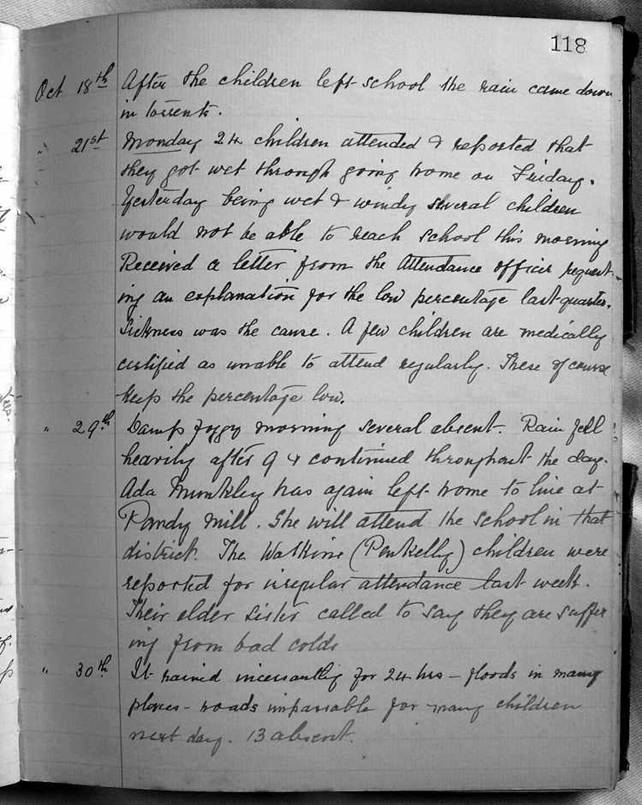 118
Oct 18th After the children left school the rain came down
in torrents.
" 21st Monday 24 children attended & reported that
they got wet through going home on Friday.
Yesterday being wet & windy several children
would not be able to reach school this morning
Received a letter from the Attendance officer request-
ing an explanation for the low percentage last quarter.
Sickness was the cause. A few children are medically
certified as unable to attend regularly. These of course
keep the percentage low.
" 29th Damp foggy morning several absent. Rain fell
heavily after 9 & continued throughout the day.
Ada Munkley has again left home to live at
Pandy Mill. She will attend the school in that
district. The Watkins (Penkelly) children were
reported for irregular attendance last week.
Their elder sister called to say they are suffer
ing from bad colds
" 30th It rained incessantly for 24 hrs - floods in many
places - roads impassable for many children
next day. 13 absent.